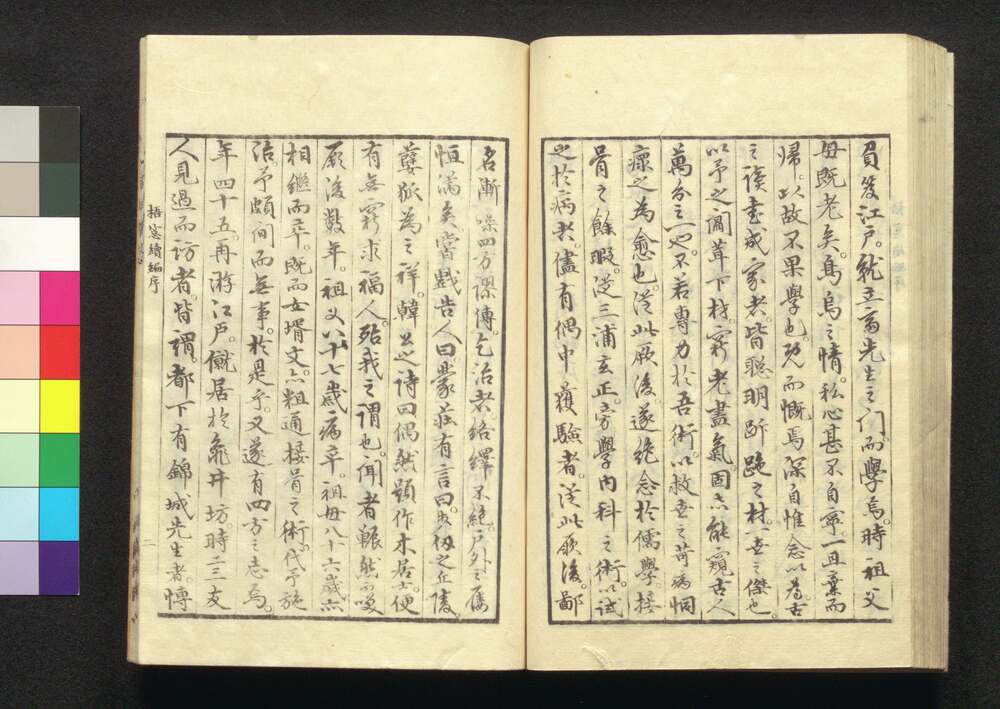 負笈江戸。就立斎先生之門。而學焉。時祖父
母既老矣。烏鳥之情。私心甚不自寧。一旦棄而
歸。以故不果學也。既而慨焉深自惟念以為。古
之讀書成家者。皆聰明踈跪之材。一世之傑也。
以予之闒茸下材。窮老盡氣。固不能窺古人
萬分之一也。不若專力於吾術。以救世之苛病恫
瘝之為愈也。從此厥後。遂絶念於儒學。接
骨之餘暇。從三浦玄正。旁學内科之術。以試
之於病者。儘有偶中獲驗者。從此厥後。鄙
名漸噪四方謬傳。乞治者。絡繹不絶。戸外之屨
恒滿矣。嘗戯告人曰。蒙莊有言曰。步仞之丘陵
孽狐為之祥。韓公之詩曰。偶然題作木居士。便
有無窮求福人。殆我之謂也。聞者囅然而咲
厥後數年。祖父八十七歳病卒。祖母八十六歳亦
相繼而卒。既而女壻文亦粗通接骨之術。代予施
治。予頗間而無事。於是乎。又遂有四方之志焉。
年四十五。再游江戸。僦居於龜井坊。時二三友
人見過而訪者。皆謂。都下有錦城先生者。博
梧窓續編序